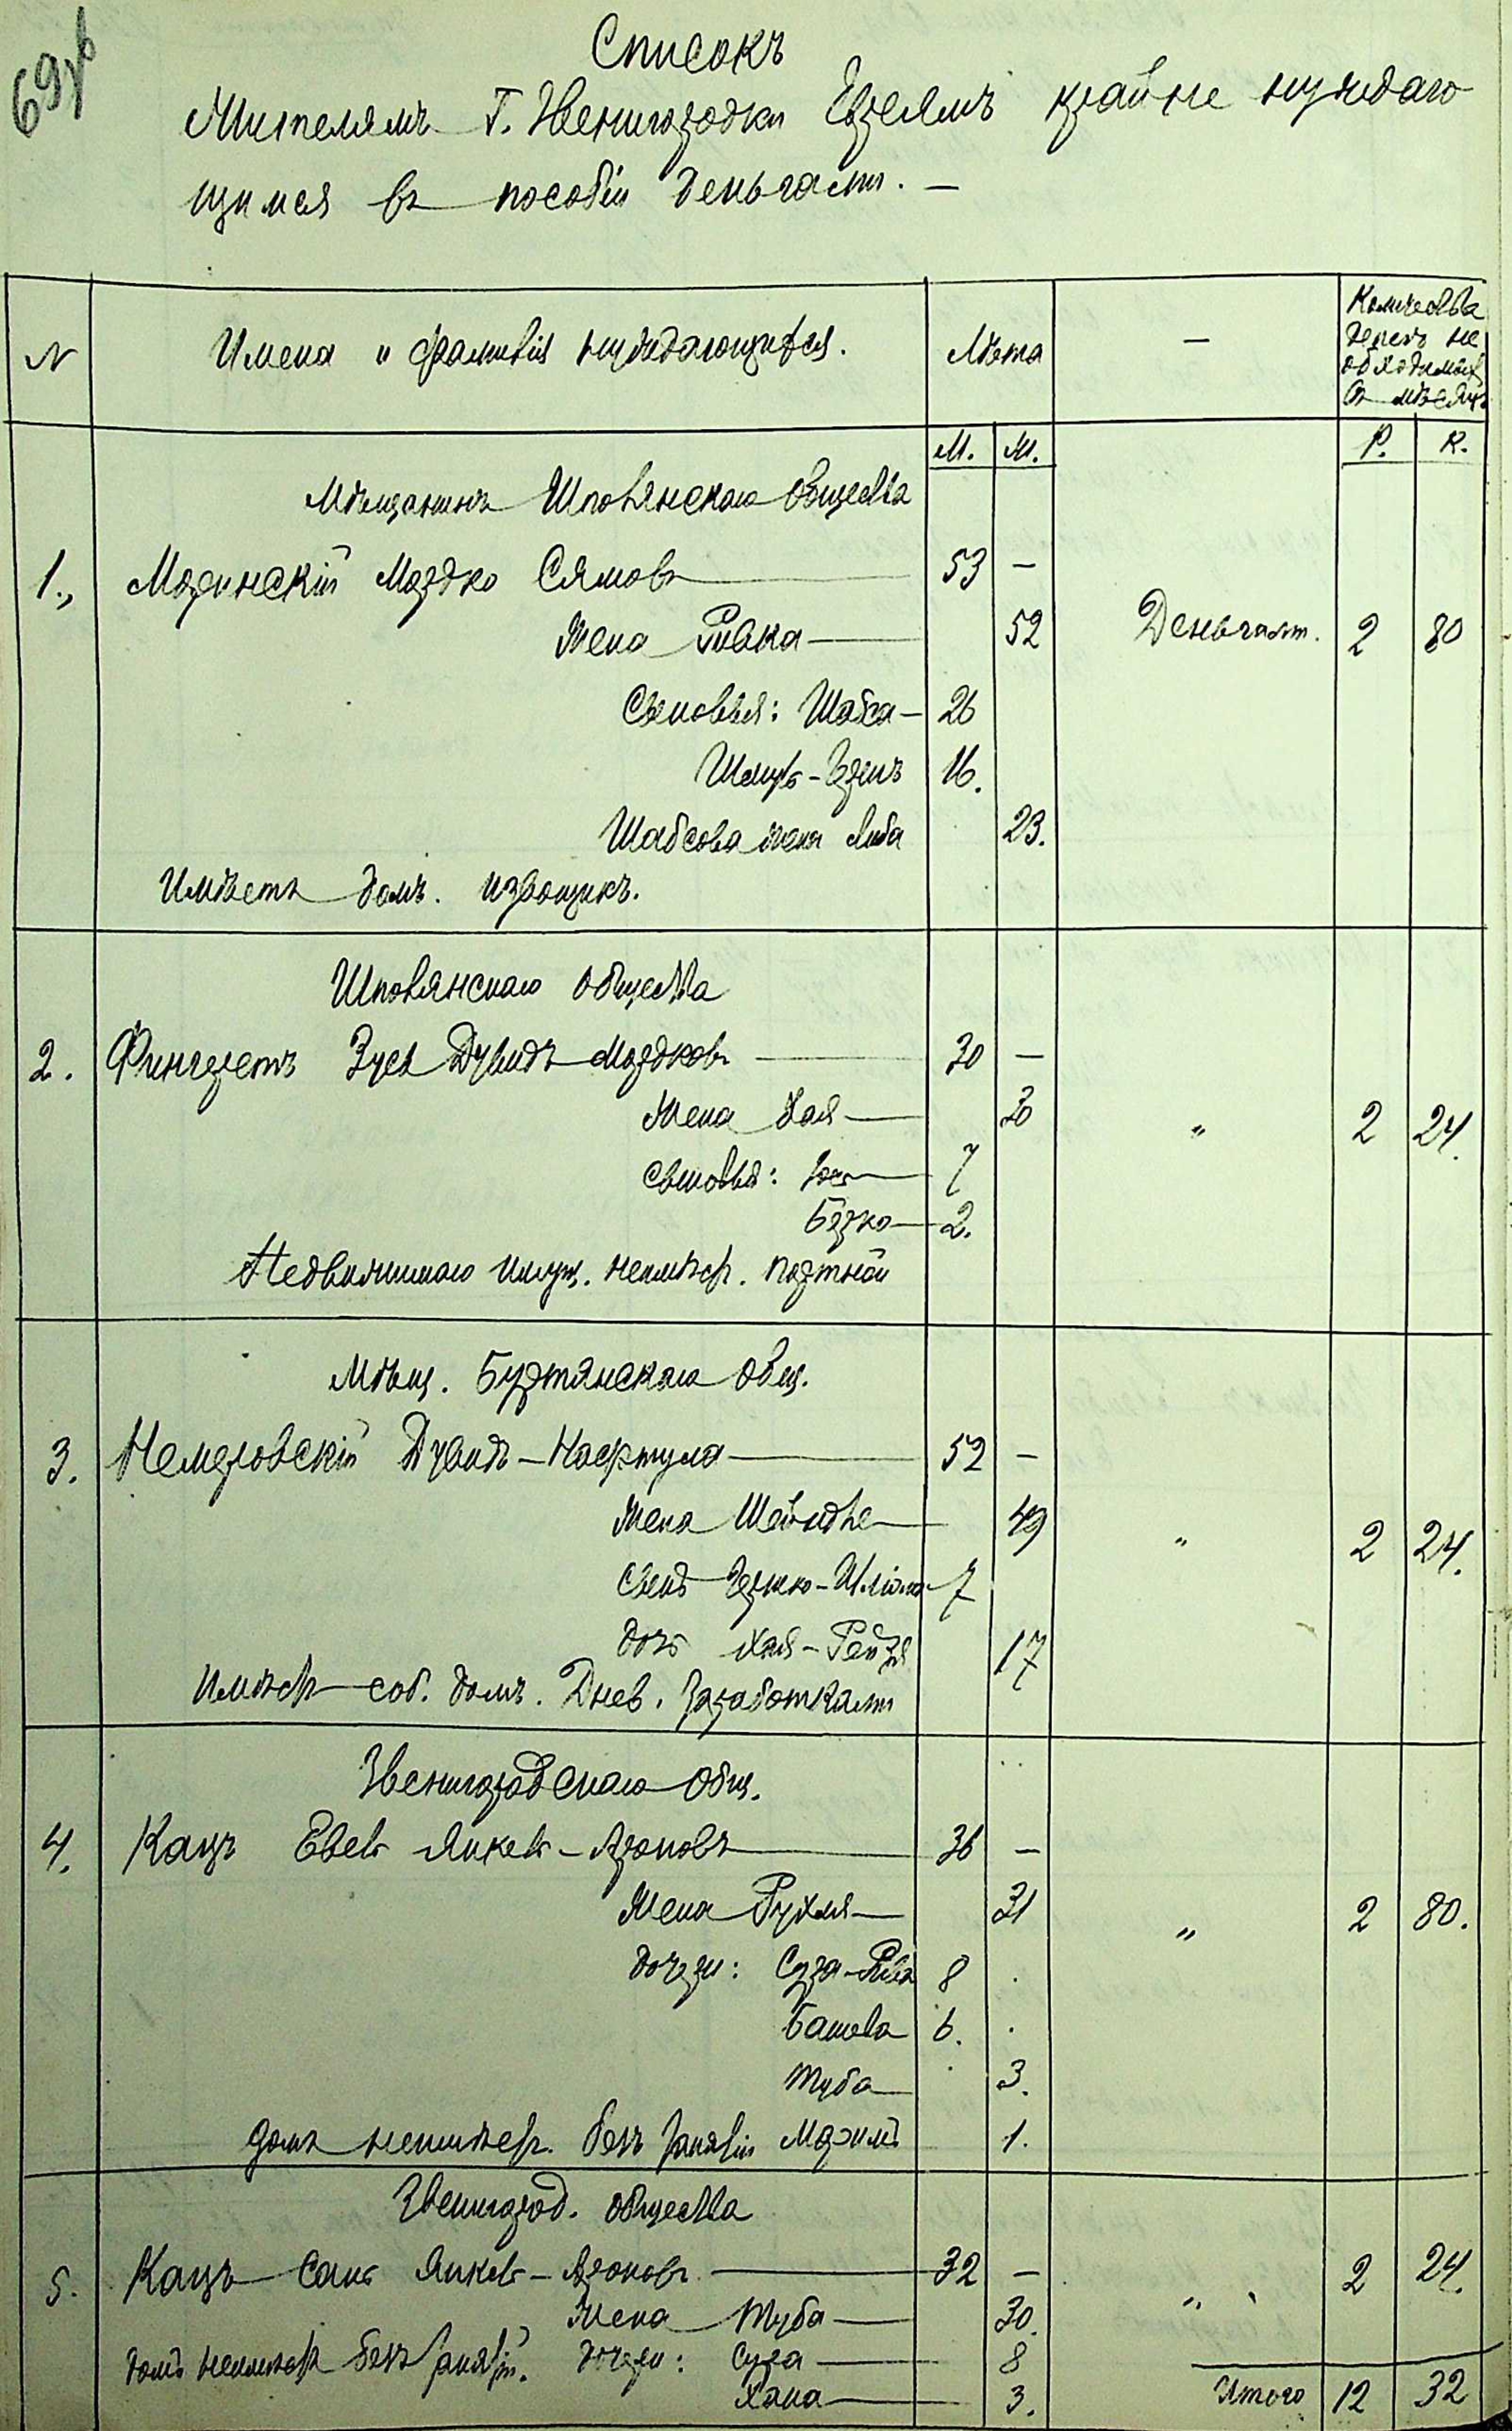 69
Списокъ
Жителямъ Г. Звенигородки Евреямъ крайне нуждаю
щимся въ пособіи деньгами. —
N Имена и фамиліи нуждающихся. Лѣта — Количество денегъ не обходимыхъ въ мѣсяцъ
М. Ж. Р. К.
Мѣщанинъ Шполянскаго общества
1., Мординскій Мордко Сямовъ 53 —
Жена Ривка — 52 Деньгами. 2 80
Сыновья: Шабса — 26
16.
Шабсова жена Люба 23.
Имѣетъ домъ. извощикъ.
Шполянскаго общества
2. Фингеретъ Зусь Дувидъ Мордковъ — 30 —
Жена Хая — 30 " 2 24.
Сыновья: — 7
Берко — 2.
Недвижимаго имущ. неимѣетъ. портной
Мѣщ. Буртянскаго общ.
3. Немеровскій Дувидъ-Нафтула — 52 —
Жена Шейндле — 49 " 2 24.
Сынъ Гершко-Шліома 7
дочь Хая-Рейзя 17
Имѣетъ соб. домъ. Днев. заработками
Звенигородскаго общ.
4. Кацъ Евель Янкель-Ароновъ — 36 —
Жена Рухля — 31 " 2 80.
дочери: Сура-Рива 8
Башева 6.
Туба — 3.
домъ неимѣетъ. безъ занятій 1.
Звенигород. общества
5. Кацъ Янкель-Ароновъ — 32 — " 2 24.
Жена Туба — 30.
домъ неимѣетъ безъ занятій. дочери: Сура — 8
Хана — 3. Итого 12 32